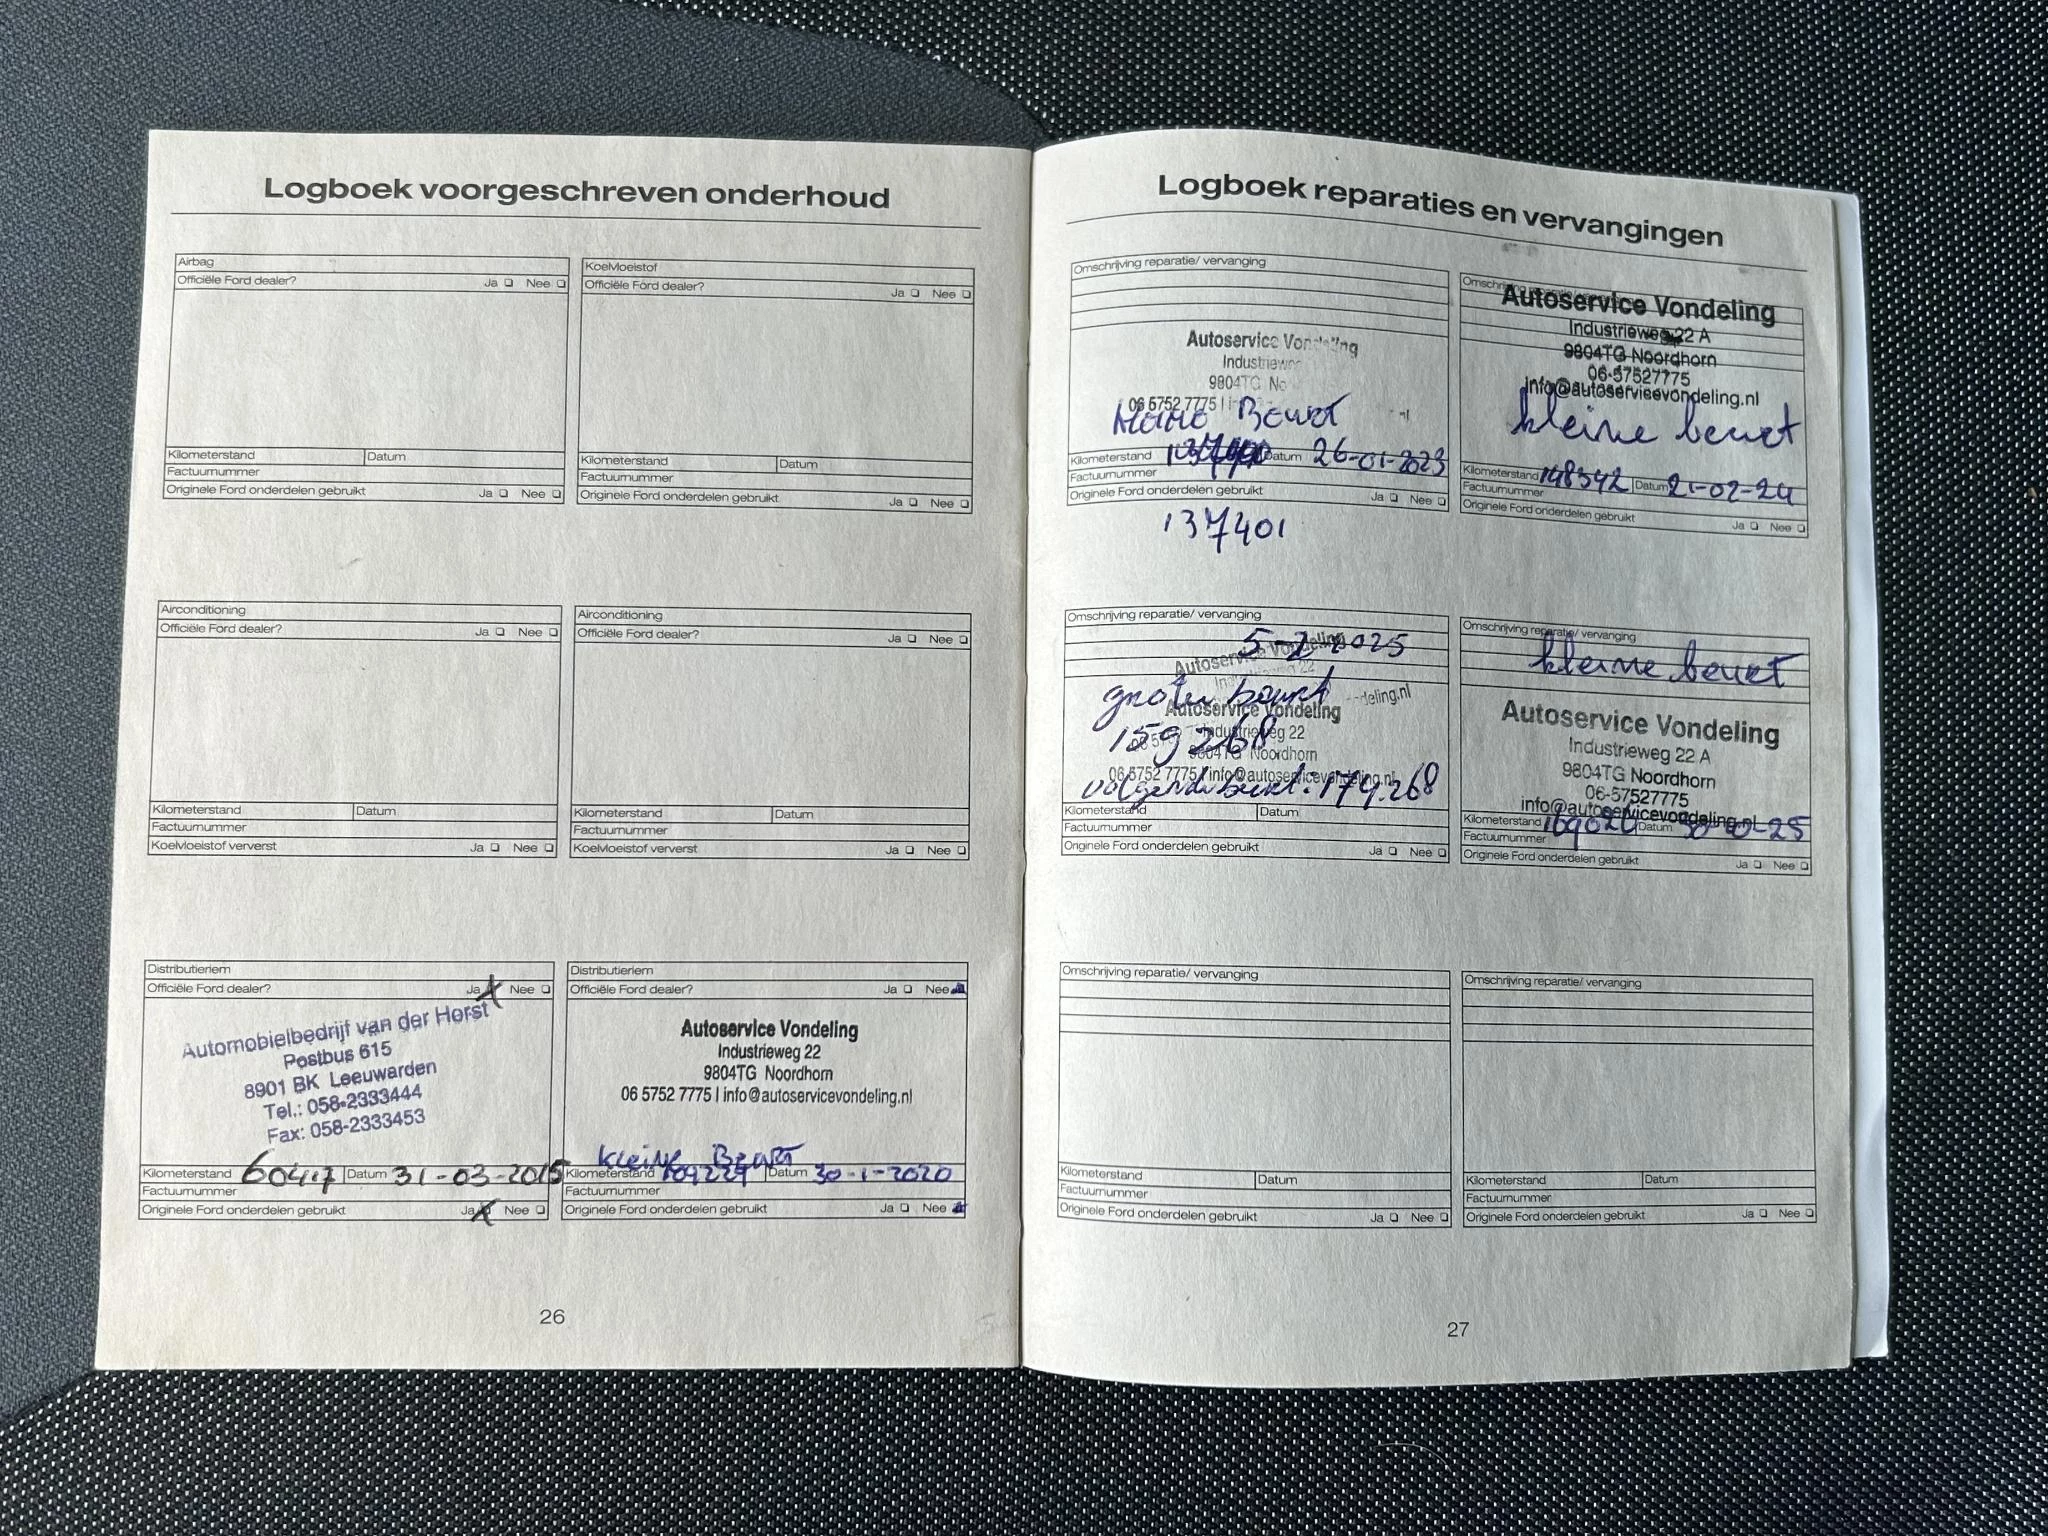 Logboek voorgeschreven onderhoud
Airbag
Officiële Ford dealer? Ja Nee
Kilometerstand Datum
Factuurnummer
Originele Ford onderdelen gebruikt Ja Nee
Koelvloeistof
Officiële Ford dealer? Ja Nee
Kilometerstand Datum
Factuurnummer
Originele Ford onderdelen gebruikt Ja Nee
Airconditioning
Officiële Ford dealer? Ja Nee
Kilometerstand Datum
Factuurnummer
Koelvloeistof ververst Ja Nee
Airconditioning
Officiële Ford dealer? Ja Nee
Kilometerstand Datum
Factuurnummer
Koelvloeistof ververst Ja Nee
Distributieriem
Officiële Ford dealer? Ja Nee
Automobielbedrijf van der Horst
Postbus 615
8901 BK Leeuwarden
Tel.: 058-2333444
Fax: 058-2333453
Kilometerstand 60417 Datum 31-03-2015
Factuurnummer
Originele Ford onderdelen gebruikt Ja Nee
Distributieriem
Officiële Ford dealer? Ja Nee
Autoservice Vondeling
Industrieweg 22
9804TG Noordhorn
06 5752 7775 | info@autoservicevondeling.nl
Kleine Beurt
Kilometerstand 109227 Datum 30-1-2020
Factuurnummer
Originele Ford onderdelen gebruikt Ja Nee
26
Logboek reparaties en vervangingen
Omschrijving reparatie/ vervanging
Autoservice Vondeling
9804TG
06 5752 7775 |
Beurt
Kilometerstand Datum 26-01-2023
Factuurnummer
Originele Ford onderdelen gebruikt Ja Nee
137401
Autoservice Vondeling
Industrieweg 22 A
9804TG Noordhorn
06-57527775
info@autoservicevondeling.nl
kleine beurt
Kilometerstand 148342 Datum 21-02-24
Factuurnummer
Originele Ford onderdelen gebruikt Ja Nee
Omschrijving reparatie/ vervanging
5-2-2025
Autoservice Vondeling
grote beurt
Autoservice Vondeling
159268
Industrieweg 22
9804TG Noordhorn
06 5752 7775 | info@autoservicevondeling.nl
volgende beurt: 174.268
Kilometerstand Datum
Factuurnummer
Originele Ford onderdelen gebruikt Ja Nee
Omschrijving reparatie/ vervanging
kleine beurt
Autoservice Vondeling
Industrieweg 22 A
9804TG Noordhorn
06-57527775
info@autoservicevondeling.nl
Kilometerstand Datum
Factuurnummer
Originele Ford onderdelen gebruikt Ja Nee
Omschrijving reparatie/ vervanging
Kilometerstand Datum
Factuurnummer
Originele Ford onderdelen gebruikt Ja Nee
Omschrijving reparatie/ vervanging
Kilometerstand Datum
Factuurnummer
Originele Ford onderdelen gebruikt Ja Nee
27